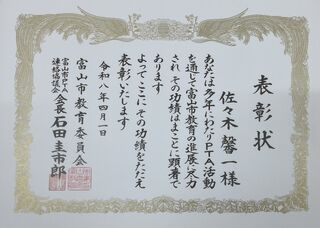 表彰状
佐々木馨一様
あなたは多年にわたりPTA活動
を通じて富山市教育の進展に尽力
され その功績はまことに顕著で
あります
よってここにその功績をたたえ
表彰いたします
令和八年四月一日
富山市教育委員会
富山市PTA
連絡協議会
会長 石田圭市郎